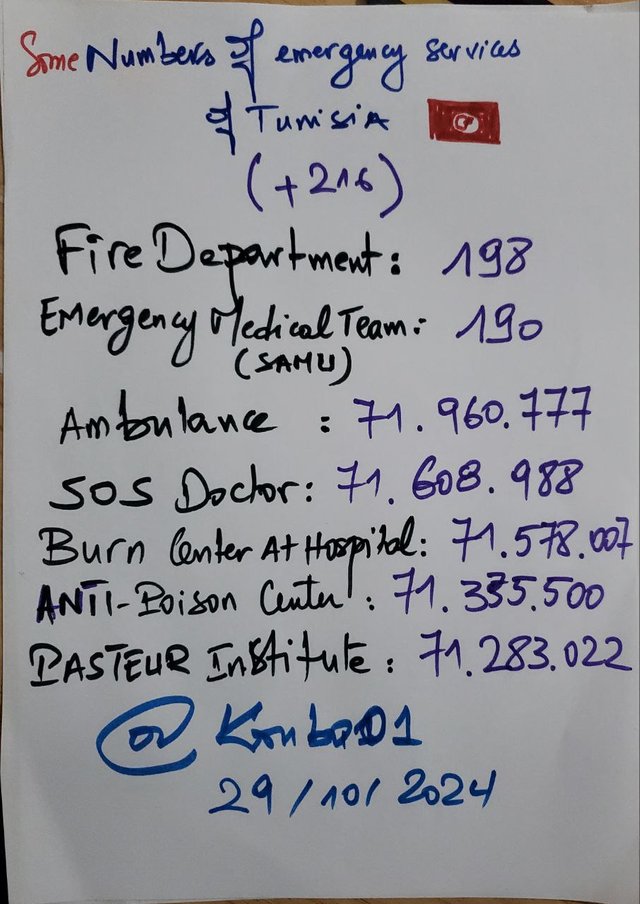 Some Numbers of emergency services
of TunisiA
(+216)
Fire Department: 198
Emergency Medical Team: 190
(SAMU)
Ambulance : 71.960.777
SOS Doctor: 71.608.988
Burn Center At Hospital: 71.578.007
ANTI-Poison Center: 71.335.500
PASTEUR Institute: 71.283.022
29/10/2024